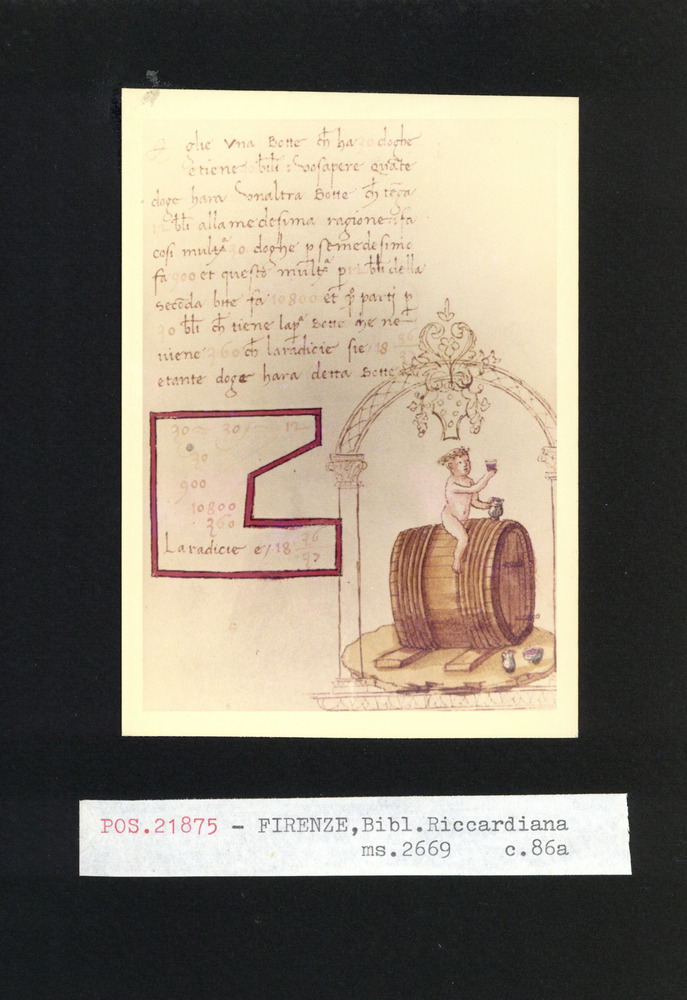 glie vna Botte ch̄ ha 30 doghe
e tiene bīli : vo sapere quāte
doge hara vnaltra Botte ch̄ tēga
12 bīli alla medesima ragione fa
cosi multa 30 doghe p se medesimo
fa 900 et questo multa p 12 bīli della
secōda bote fa 10800 et p̄ parti p
30 bīli ch̄ tiene lap̄a Botte che ne
viene 360 ch̄ laradicie sie 18 36
etante doge hara detta Botte
30 30 12
30
900
10800
360
Laradicie e / 18 36
37
POS.21875 - FIRENZE,Bibl.Riccardiana
ms.2669 c.86a